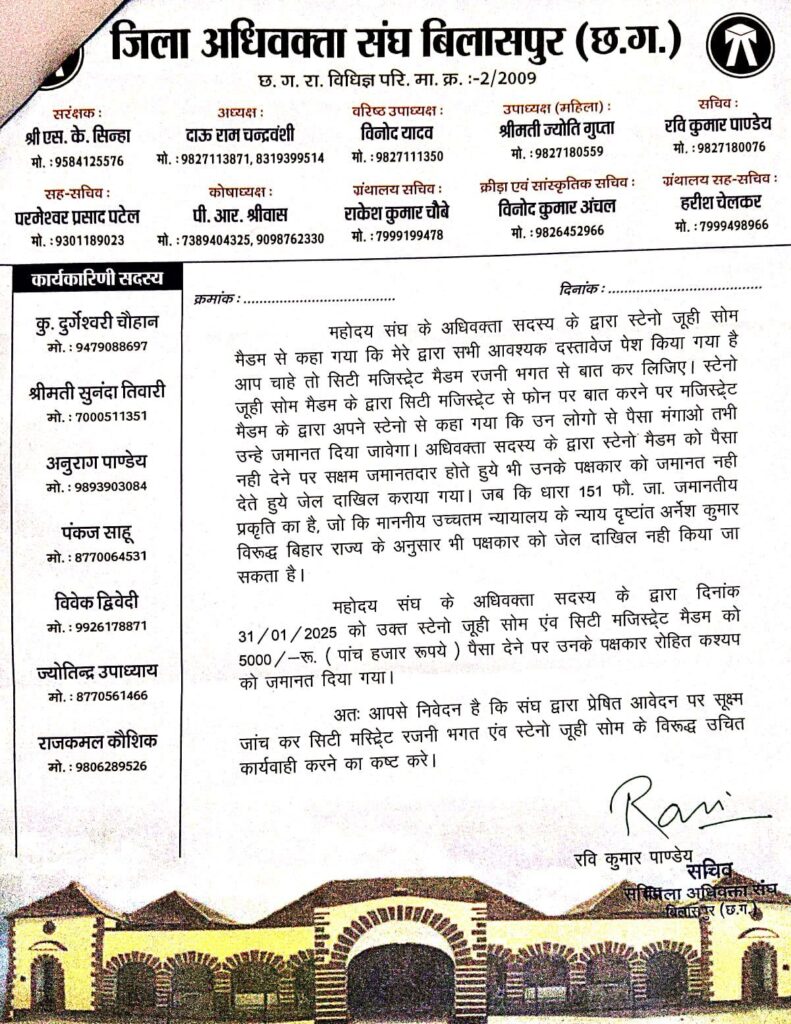 जिला अधिवक्ता संघ बिलासपुर (छ.ग.)
छ. ग. रा. विधिज्ञ परि. मा. क्र. :-2/2009
सरंक्षक :
श्री एस. के. सिन्हा
मो. : 9584125576
अध्यक्ष :
दाऊ राम चन्द्रवंशी
मो. : 9827113871, 8319399514
वरिष्ठ उपाध्यक्ष :
विनोद यादव
मो. : 9827111350
उपाध्यक्ष (महिला) :
श्रीमती ज्योति गुप्ता
मो. : 9827180559
सचिव :
रवि कुमार पाण्डेय
मो. : 9827180076
सह-सचिव :
परमेश्वर प्रसाद पटेल
मो. : 9301189023
कोषाध्यक्ष :
पी. आर. श्रीवास
मो. : 7389404325, 9098762330
ग्रंथालय सचिव :
राकेश कुमार चौबे
मो. : 7999199478
क्रीड़ा एवं सांस्कृतिक सचिव :
विनोद कुमार अंचल
मो. : 9826452966
ग्रंथालय सह-सचिव :
हरीश चेलकर
मो. : 7999498966
कार्यकारिणी सदस्य
कु. दुर्गेश्वरी चौहान
मो. : 9479088697
श्रीमती सुनंदा तिवारी
मो. : 7000511351
अनुराग पाण्डेय
मो. : 9893903084
पंकज साहू
मो. : 8770064531
विवेक द्विवेदी
मो. : 9926178871
ज्योतिन्द्र उपाध्याय
मो. : 8770561466
राजकमल कौशिक
मो. : 9806289526
क्रमांक : ...................................... दिनांक : ......................................
महोदय संघ के अधिवक्ता सदस्य के द्वारा स्टेनो जूही सोम
मैडम से कहा गया कि मेरे द्वारा सभी आवश्यक दस्तावेज पेश किया गया है
आप चाहे तो सिटी मजिस्ट्रेट मैडम रजनी भगत से बात कर लिजिए। स्टेनो
जूही सोम मैडम के द्वारा सिटी मजिस्ट्रेट से फोन पर बात करने पर मजिस्ट्रेट
मैडम के द्वारा अपने स्टेनो से कहा गया कि उन लोगो से पैसा मंगाओ तभी
उन्हे जमानत दिया जावेगा। अधिवक्ता सदस्य के द्वारा स्टेनो मैडम को पैसा
नही देने पर सक्षम जमानतदार होते हुये भी उनके पक्षकार को जमानत नही
देते हुये जेल दाखिल कराया गया। जब कि धारा 151 फौ. जा. जमानतीय
प्रकृति का है, जो कि माननीय उच्चतम न्यायालय के न्याय दृष्टांत अर्नेश कुमार
विरूद्ध बिहार राज्य के अनुसार भी पक्षकार को जेल दाखिल नही किया जा
सकता है।
महोदय संघ के अधिवक्ता सदस्य के द्वारा दिनांक
31/01/2025 को उक्त स्टेनो जूही सोम एंव सिटी मजिस्ट्रेट मैडम को
5000/-रू. ( पांच हजार रूपये ) पैसा देने पर उनके पक्षकार रोहित कश्यप
को जमानत दिया गया।
अतः आपसे निवेदन है कि संघ द्वारा प्रेषित आवेदन पर सूक्ष्म
जांच कर सिटी मस्ट्रिेट रजनी भगत एंव स्टेनो जूही सोम के विरूद्ध उचित
कार्यवाही करने का कष्ट करे।
Ravi
रवि कुमार पाण्डेय
सचिव
जिला अधिवक्ता संघ
बिलासपुर (छ.ग.)